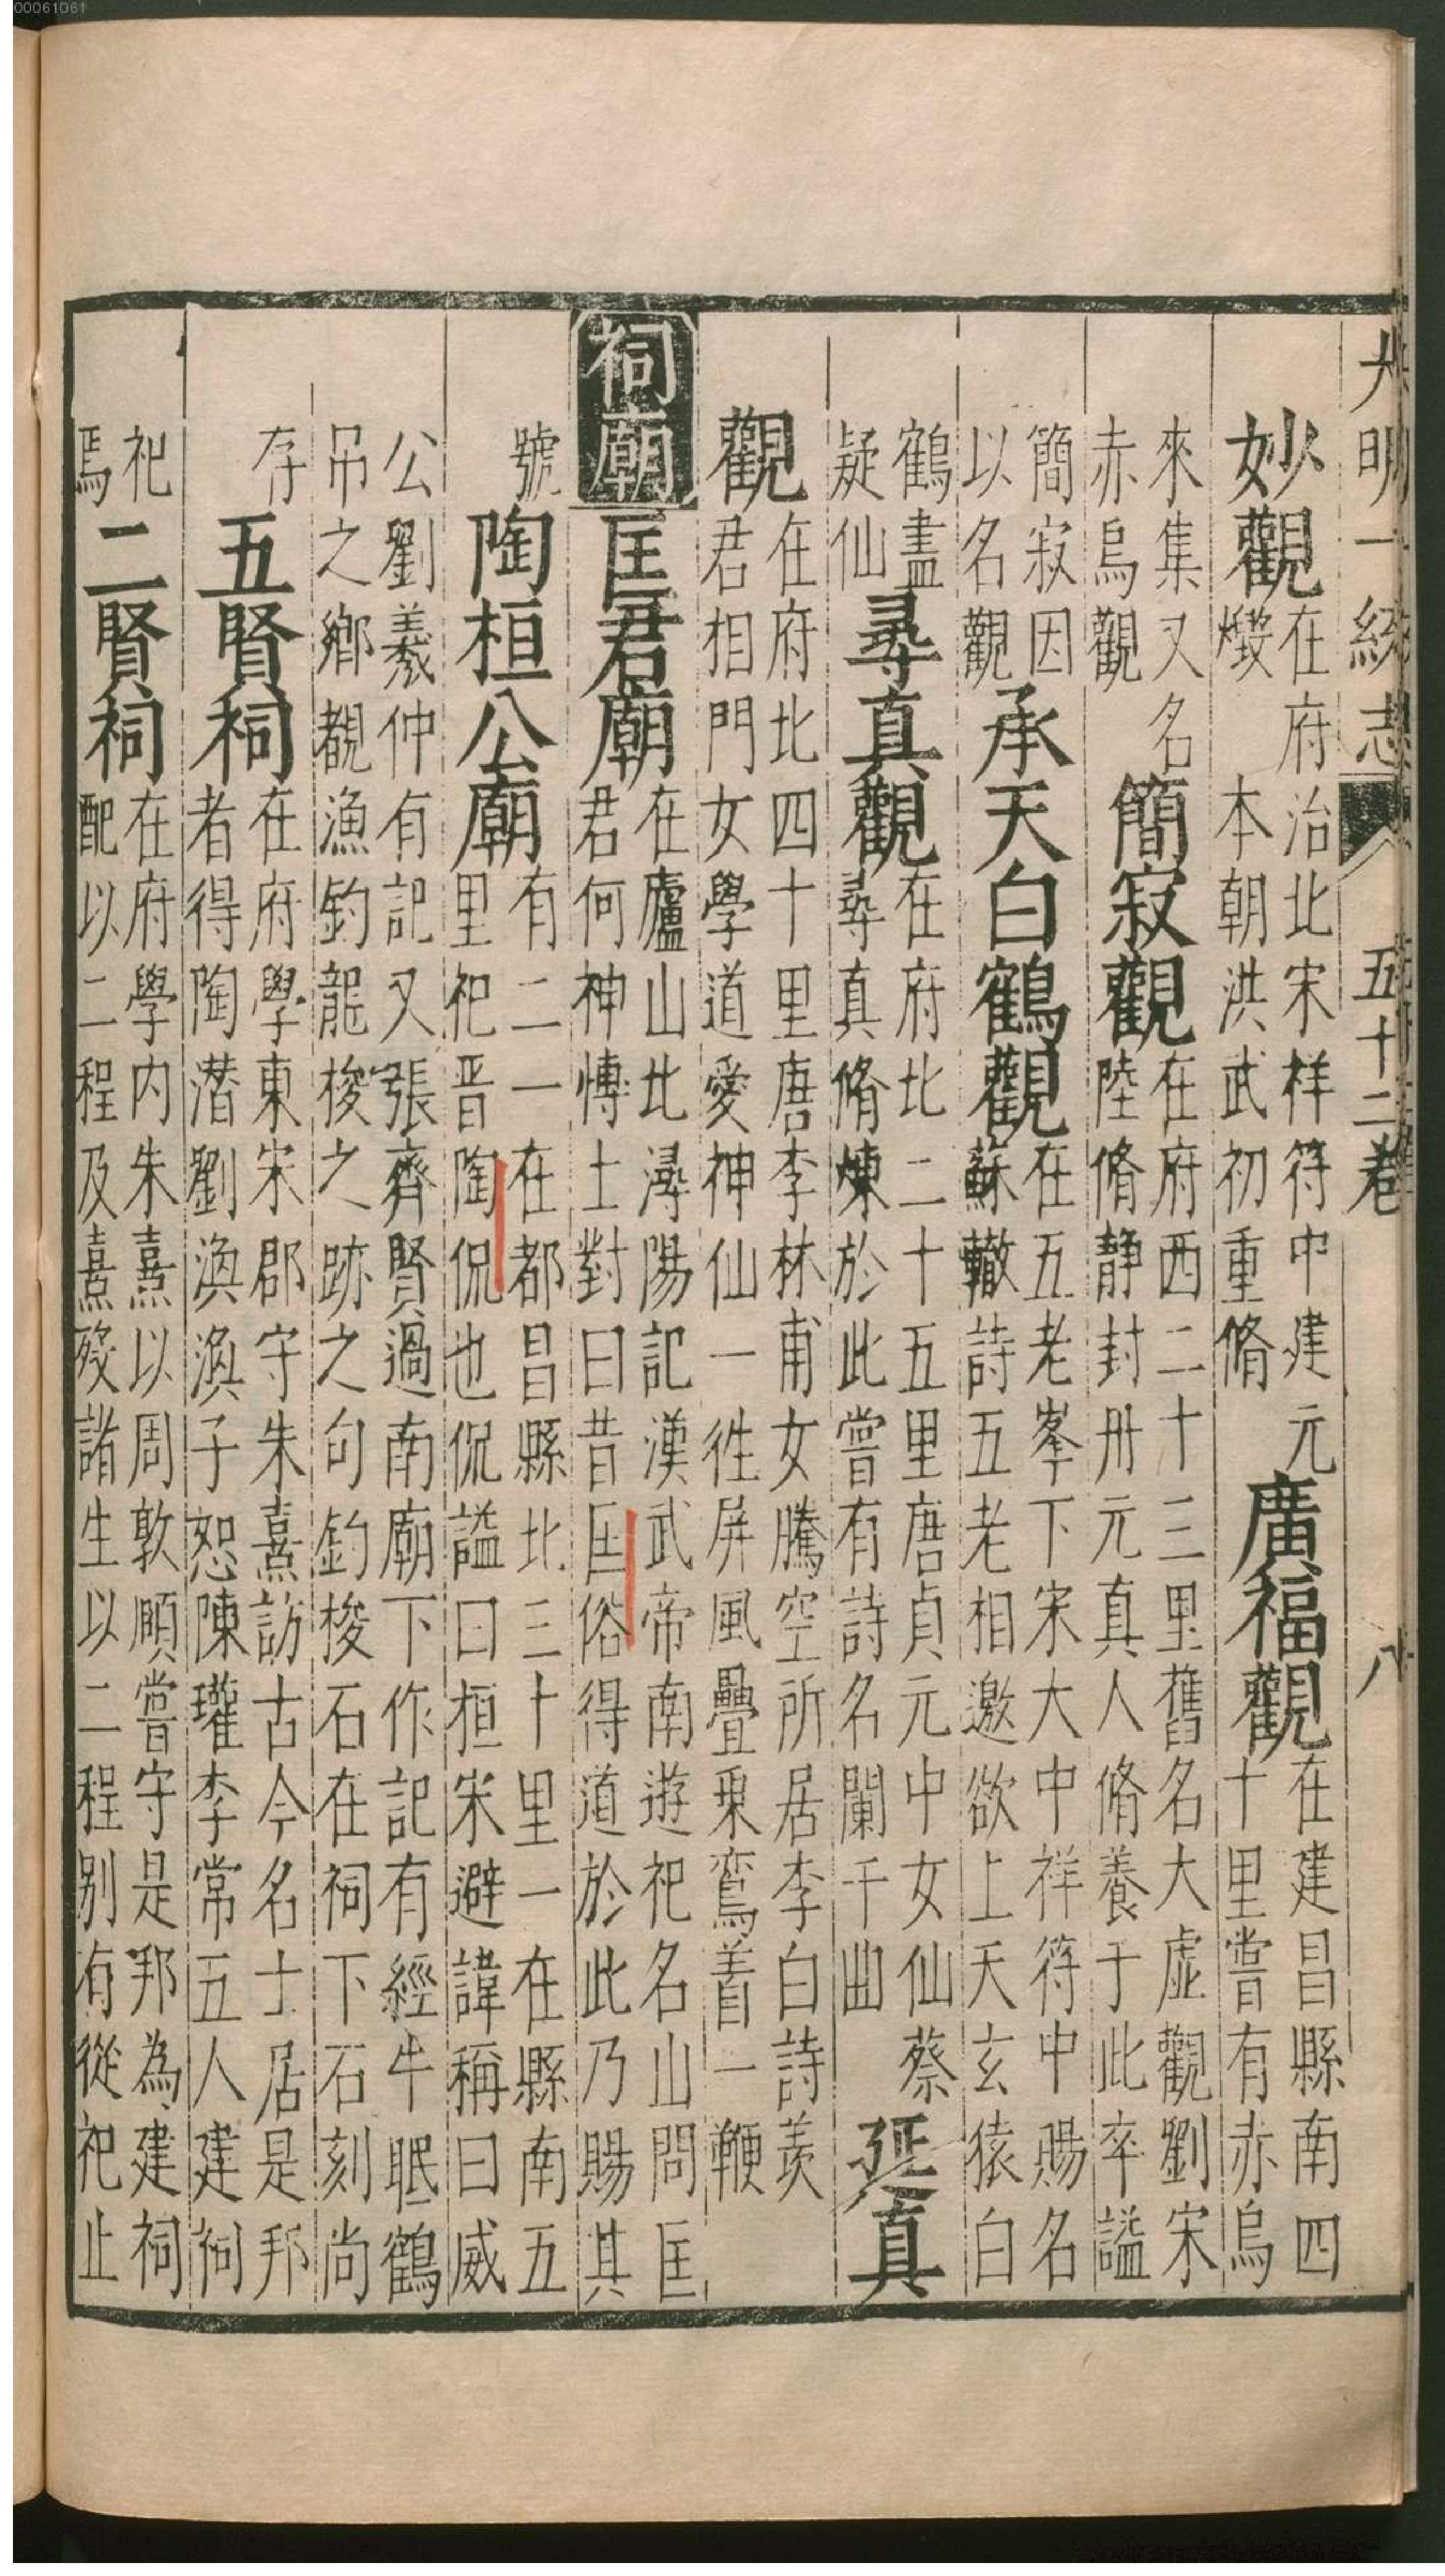 00061061
大明一統志 五十二卷 八
妙觀 在府治北宋祥符中建元燬 本朝洪武初重脩 廣福觀 在建昌縣南四十里嘗有赤烏
來集又名赤烏觀 簡寂觀 在府西二十三里舊名大虛觀劉宋陸脩靜封丹元真人脩養于此卒謚
簡寂因以名觀 承天白鶴觀 在五老峯下宋大中祥符中賜名蘇轍詩五老相邀欲上天玄猿白
鶴盡疑仙 尋真觀 在府北二十五里唐貞元中女仙蔡尋真脩煉於此嘗有詩名闌千曲 延真
觀 在府北四十里唐李林甫女騰空所居李白詩羨君相門女學道愛神仙一徃屏風疊乗鸞着一鞭
祠廟 匡君廟 在廬山北潯陽記漢武帝南遊祀名山問匡君何神博士對曰昔匡俗得道於此乃賜其
號 陶桓公廟 有二一在都昌縣北三十里一在縣南五里祀晉陶侃也侃謚曰桓宋避諱稱曰威
公劉羲仲有記又張齊賢過南廟下作記有經牛眠鶴吊之鄉覩漁釣龍梭之跡之句釣梭石在祠下石刻尚
存 五賢祠 在府學東宋郡守朱熹訪古今名士居是邦者得陶潛劉渙渙子恕陳瓘李常五人建祠
祀焉 二賢祠 在府學内朱熹以周敦頤嘗守是邦為建祠配以二程及熹歿諸生以二程别有從祀止